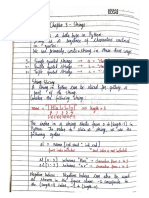 Chapter 3 - Strings
String is a data type in Python
String is a sequence of characters enclosed in quotes
We can primarily write a string in these three ways
1. Single quoted strings → a = 'Harry'
2. Double quoted strings → b = "Harry"
3. Triple quoted strings → c = '''Harry'''
String Slicing
A string in Python can be sliced for getting a part of the string
Consider the following string
name = " H a r r y " → length = 5
The index in a string starts from 0 to (length-1) in Python. In order to slice a string, we use the following syntax
sl = name [ind_start : ind_end]
first index included
last index is not included
sl [0:3] returns "Har" → characters from 0 to 3
sl [1:3] returns "ar" → characters from 1 to 3
Negative Indices: Negative indices can also be used as shown in the figure above. -1 corresponds to the (length-1) index, -2 to (length-2)